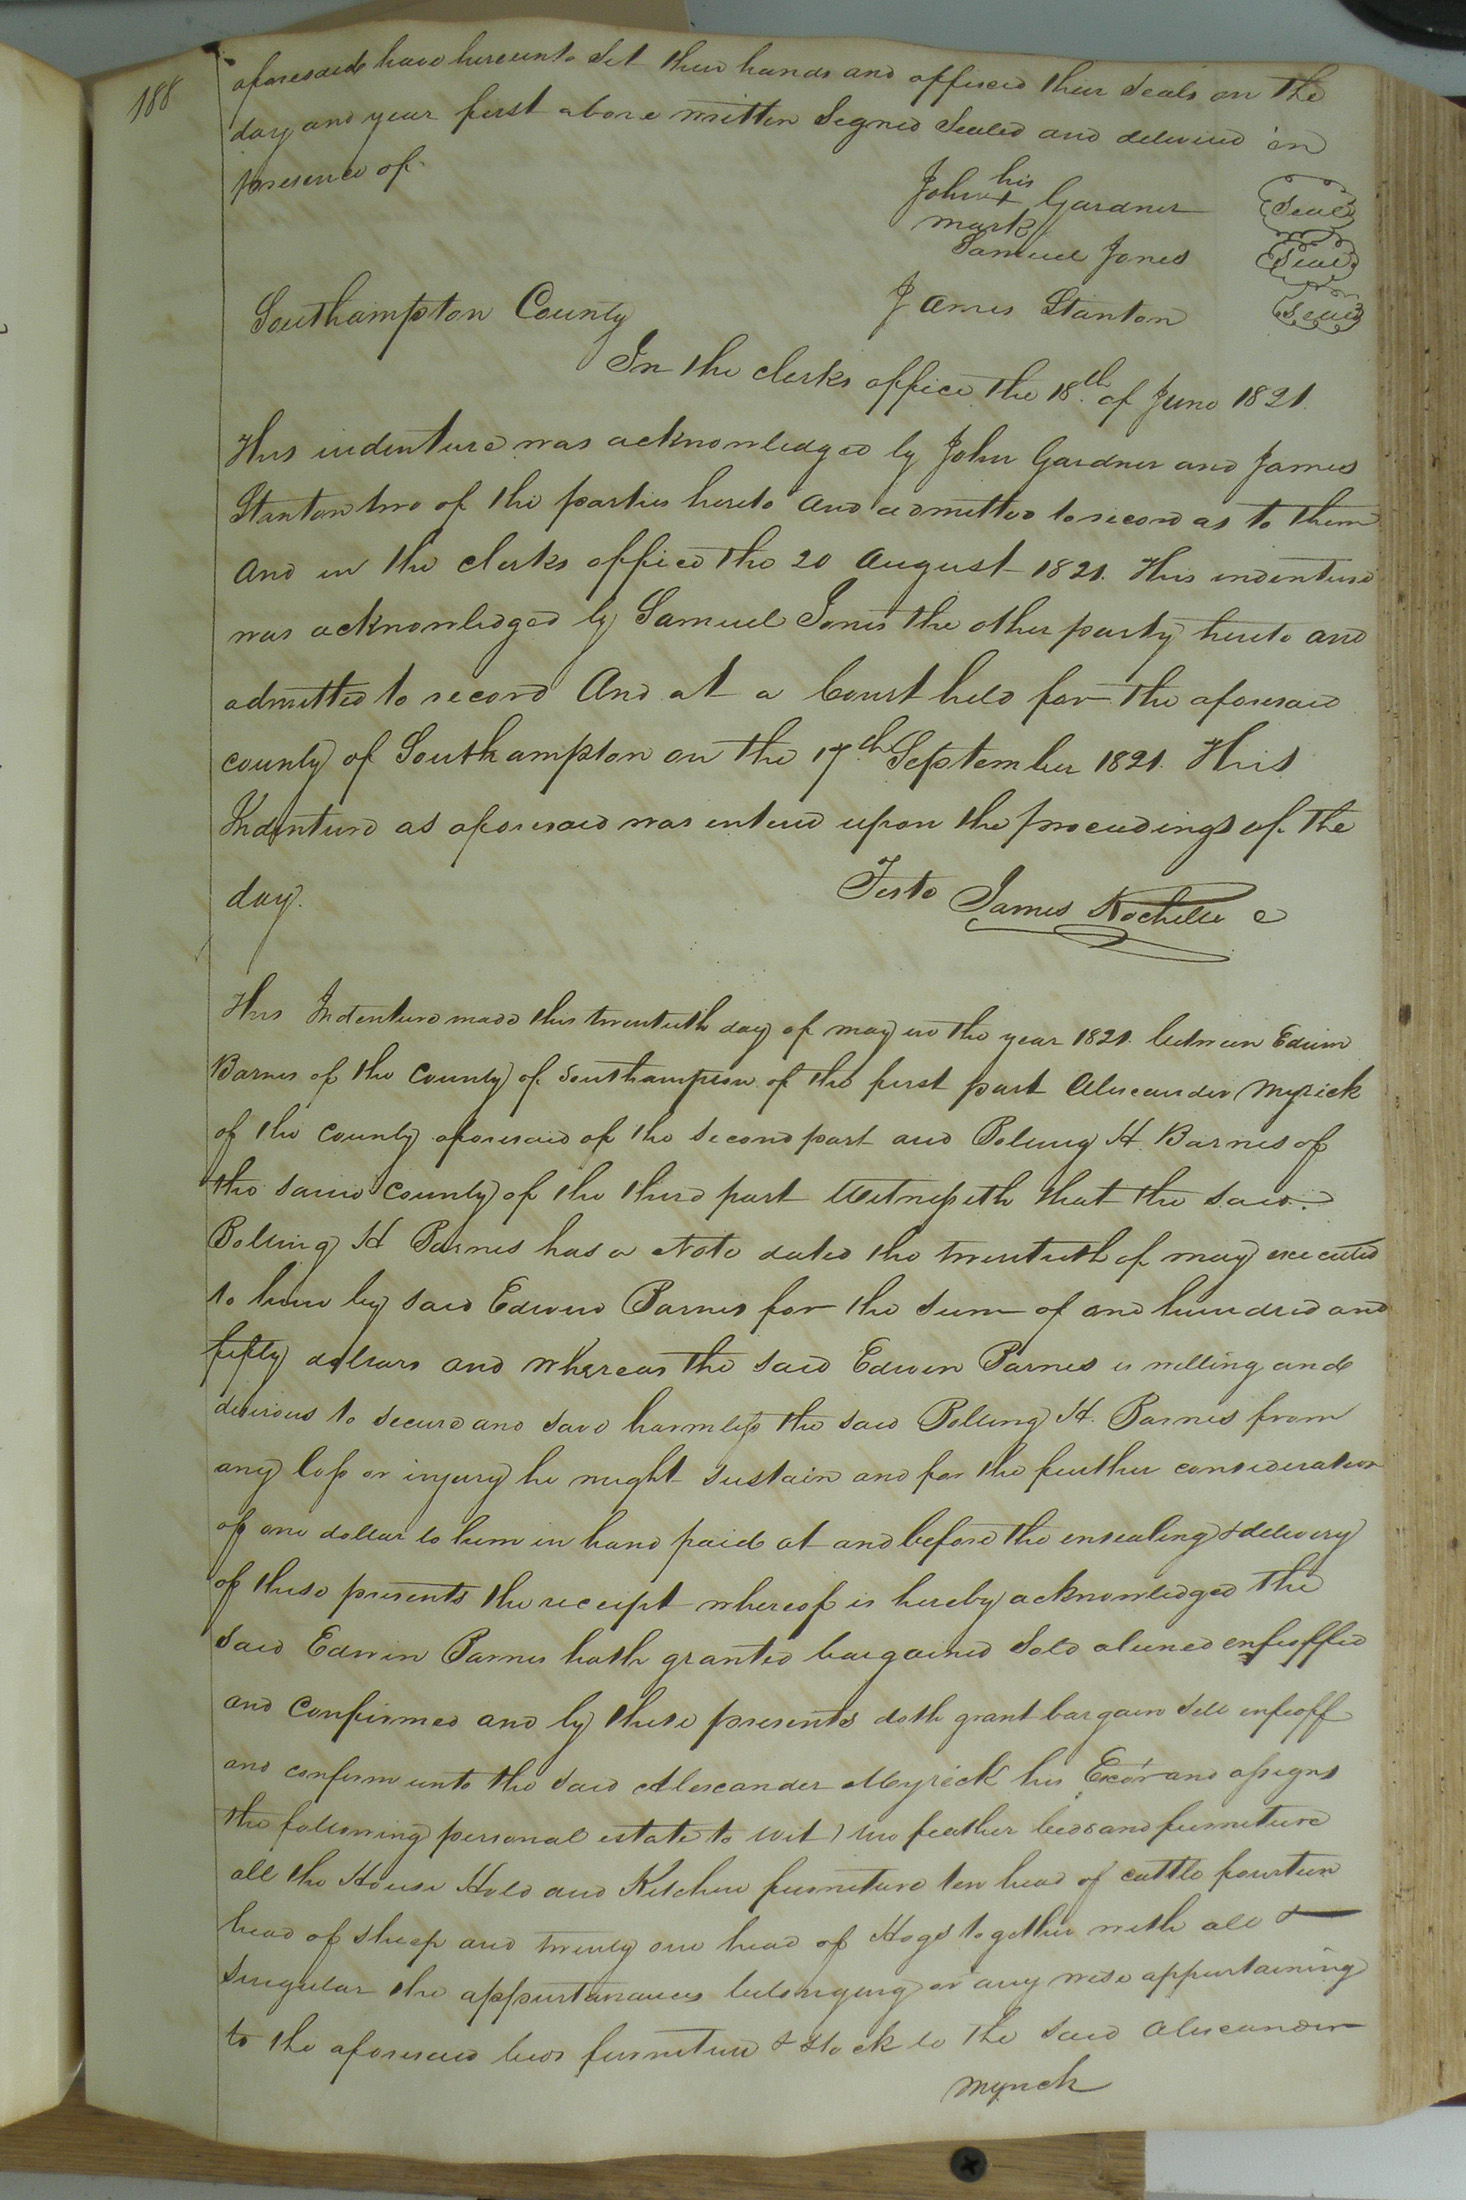 188
aforesaid have hereunto Set their hands and affixed their Seals on the
day and year first above written Signed Sealed and delivered in
presence of
his
John + Gardner Seal
mark
Samuel Jones Seal
James Stanton Seal
Southampton County
In the clerks office the 18th of June 1821.
This indenture was acknowledged by John Gardner and James
Stanton two of the parties hereto And admitted to record as to them
And in the clerks office the 20 August 1821. This indenture
was acknowledged by Samuel Jones the other party hereto and
admitted to record And at a Court held for the aforesaid
county of Southampton on the 17th September 1821. This
Indenture as aforesaid was entered upon the proceedings of the
day.
Teste James Rochelle C
This Indenture made this twentieth day of may in the year 1821. between Edwin
Barnes of the County of Southampton of the first part Alexander Myrick
of the County aforesaid of the Second part and Bolling H. Barnes of
the same County of the third part Witnesseth that the said
Bolling H Barnes has a Note dated the twentieth of may executed
to him by said Edwin Barnes for the sum of one hundred and
fifty dollars and whereas the said Edwin Barnes is willing and
desirous to secure and save harmless the said Bolling H. Barnes from
any loss or injury he might sustain and for the further consideration
of one dollar to him in hand paid at and before the ensealing & delivery
of these presents the receipt whereof is hereby acknowledged the
said Edwin Barnes hath granted bargained Sold aliened enfeoffed
and Confirmed and by these presents doth grant bargain Sell enfeoff
and confirm unto the said Alexander Myrick his Exo'r and assigns
the following personal estate to wit) two feather beds and furniture
all the House Hold and Kitchen furniture ten head of cattle fourteen
head of sheep and twenty one head of Hogs together with all &
Singular the appurtanances belonging or any wise appurtaining
to the aforesaid beds furniture & stock to the said Alexander
Myrick